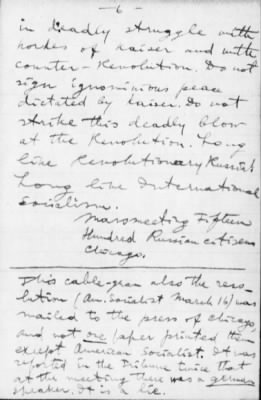 -6-
in deadly struggle with
hordes of kaiser and with
counter-Revolution. Do not
sign ignominious peace
dictated by kaiser. Do not
strike this deadly blow
at the Revolution. Long
live Revolutionary Russia!
Long live International
Socialism.
Massmeeting Fifteen
Hundred Russian citizens
Chicago.
This cable-gram also the reso-
lution (Am. Socialist March 16) was
mailed to the press of Chicago,
and not one paper printed them
except American Socialist. It was
reported in the Tribune twice that
at the meeting there was a german
speaker. It is a lie.